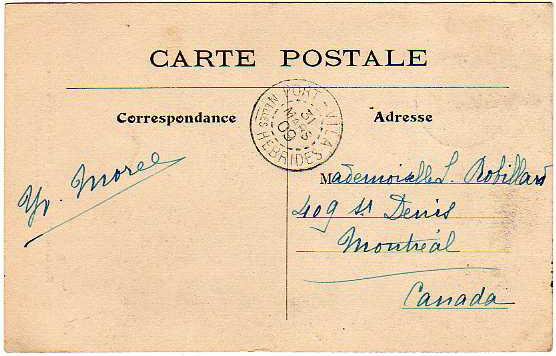 CARTE POSTALE
Correspondance
Adresse
PORT-VILA
31
MARS
09
NLLES HEBRIDES
Yv. Morel
Mademoiselle S. Robillard
409 St Denis
Montréal
Canada